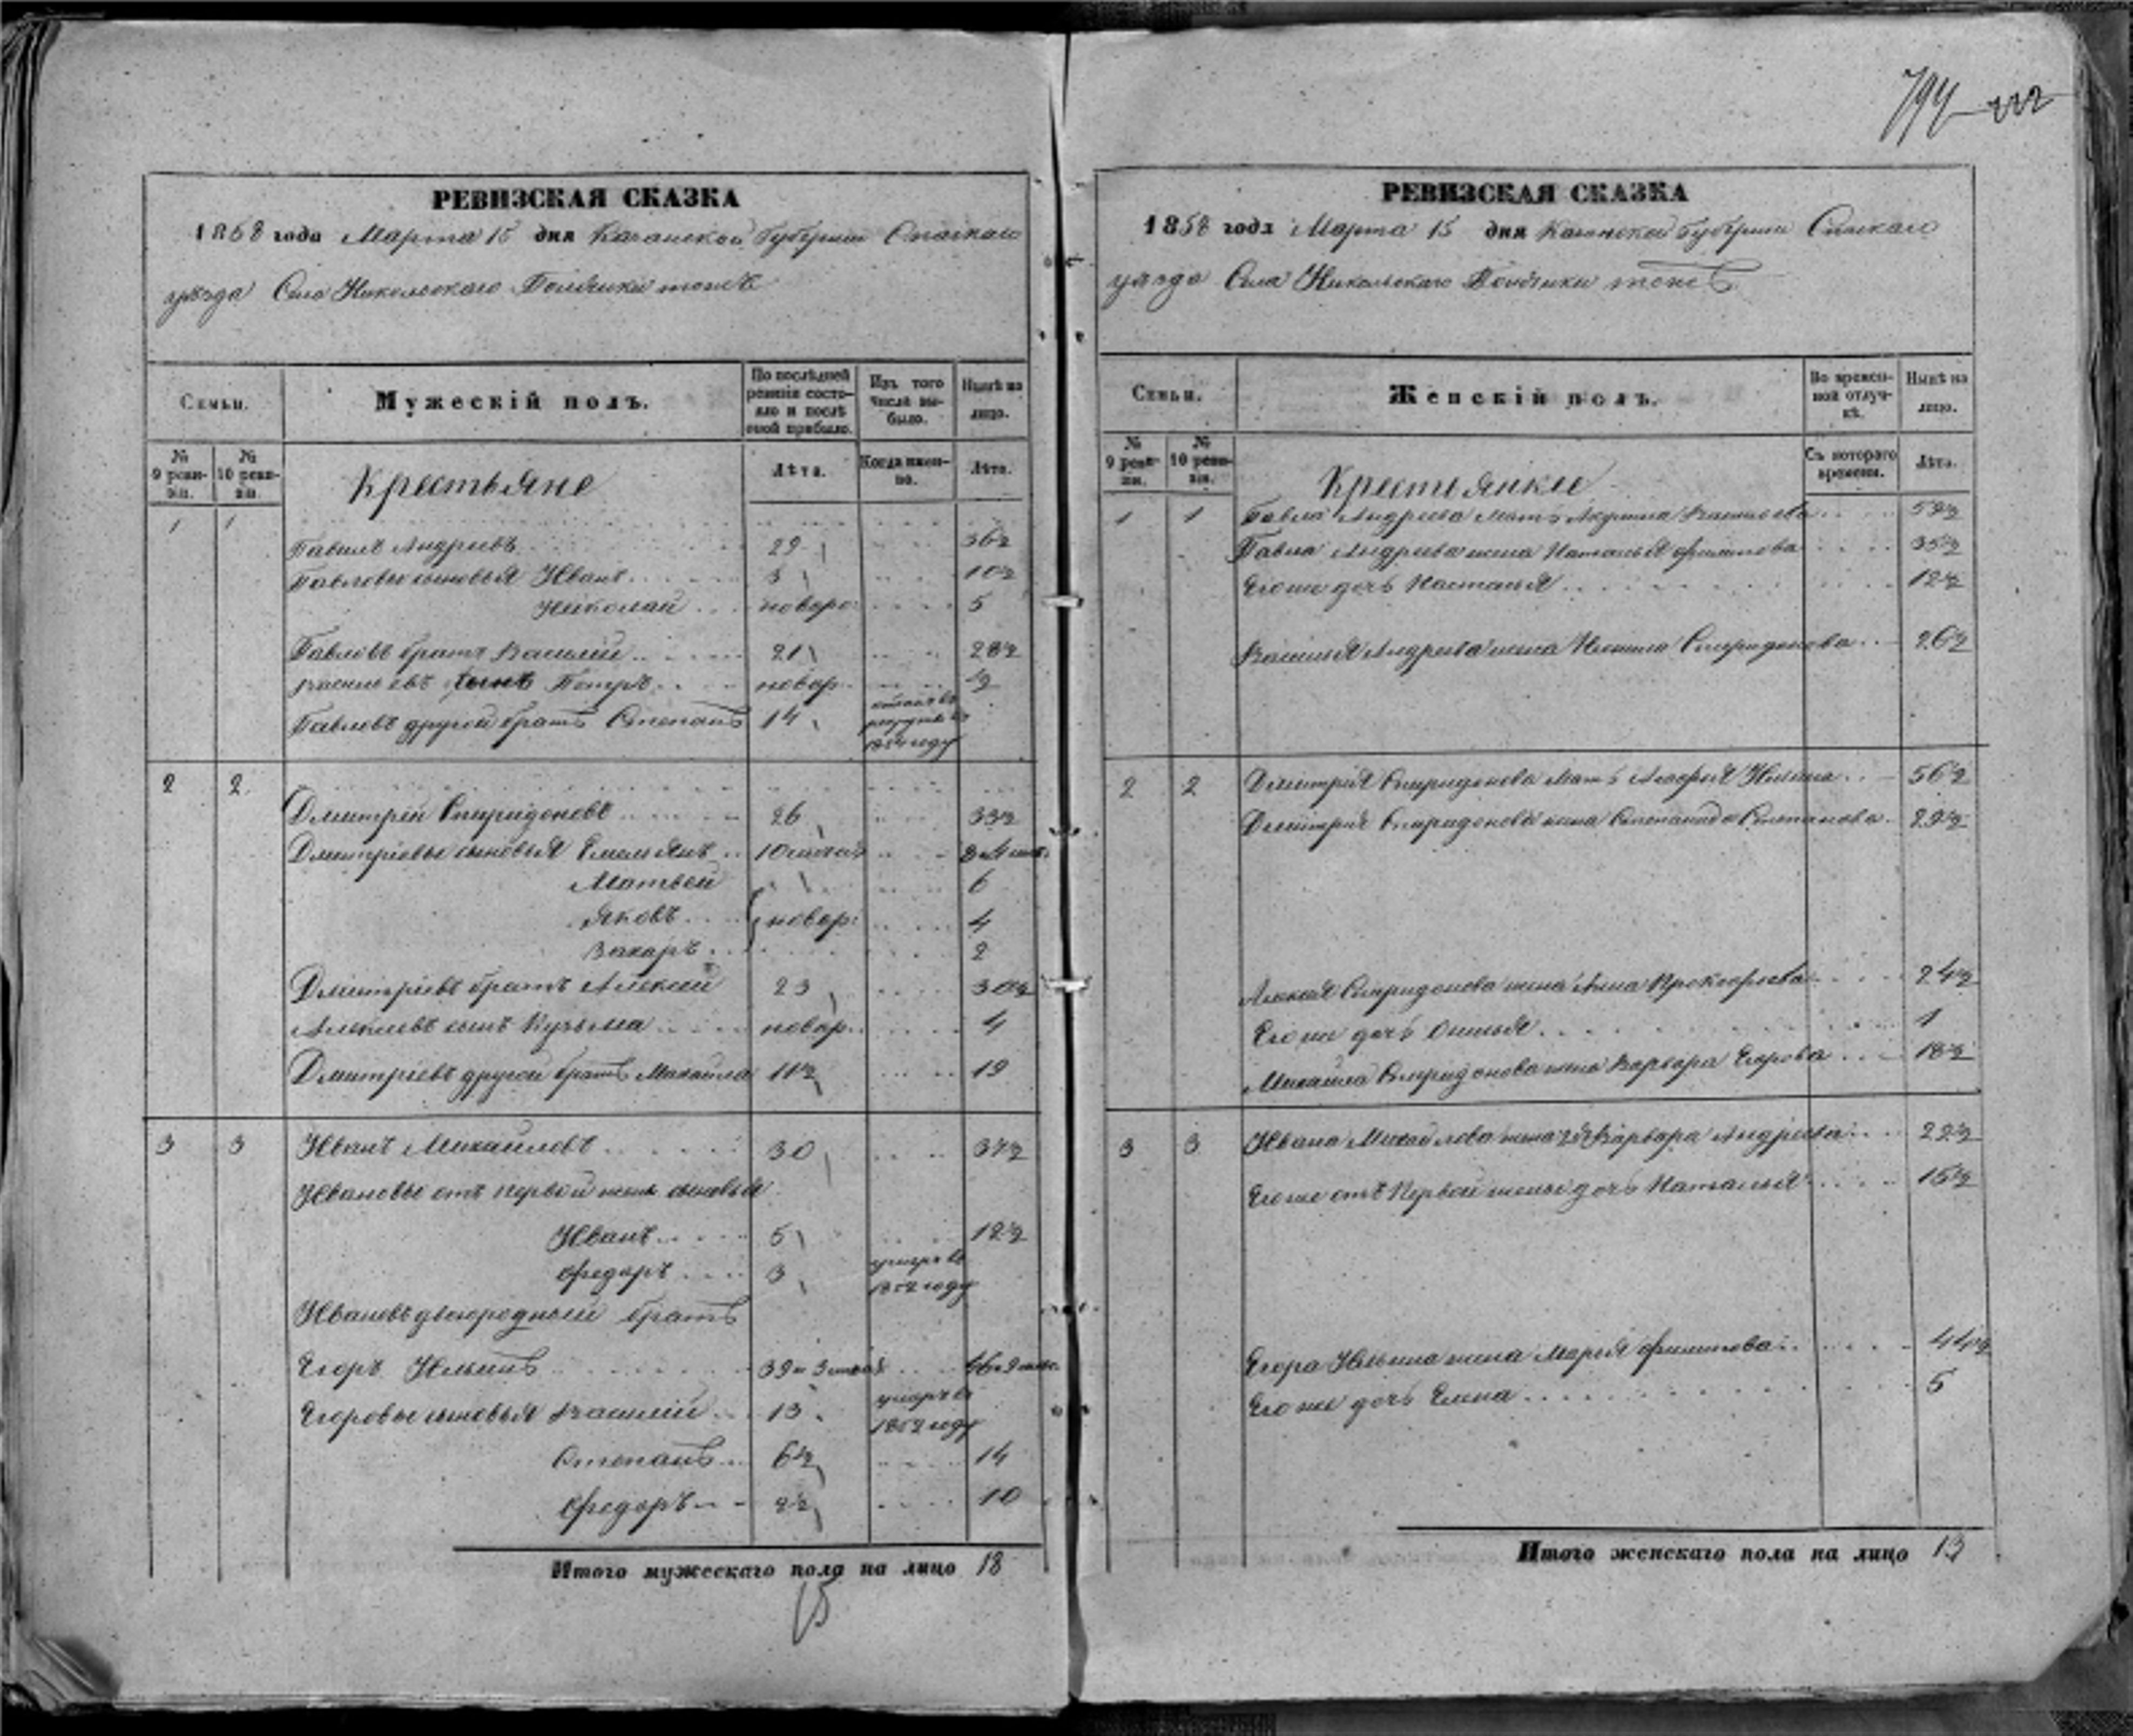 794
РЕВИЗСКАЯ СКАЗКА
1858 года Марта 15 дня Казанской Губернии Спаскаго
уѣзда Села Никольскаго тожъ
Семьи.
Мужескій полъ.
По послѣдней ревизіи состояло и послѣ оной прибыло.
Изъ того числа выбыло.
Нынѣ на лицо.
№ 9 ревизіи.
№ 10 ревизіи.
Крестьяне
Лѣта.
Когда именно.
Лѣта.
1 1
Павелъ Андреевъ 29 36½
Павловы сыновья Иванъ 3 10½
Николай новоро: 5
Павловъ братъ Василий 21 28½
Васильевъ сынъ Петръ новор. ½
Павловъ другой братъ Степанъ 14 въ рекруты въ 1854 году
2 2
Дмитрий Спиридоновъ 26 33½
Дмитриевы сыновья Емельянъ 10
Матвей 6
Яковъ новор: 4
Захаръ 2
Дмитриевъ братъ Алексей 23 30½
Алексеевъ сынъ Кузьма новор. 4
Дмитриевъ другой братъ Михайла 11½ 19
3 3 Иванъ Михайловъ 30 37½
Ивановы отъ первой жены сыновья
Иванъ 5 12½
Федоръ 3 умеръ въ 1852 году
Ивановъ двоюродный братъ
Егоръ Ильинъ
Егоровы сыновья Василий 13 умеръ въ 1852 году
Степанъ 6½ 14
Федоръ 2½ 10
Итого мужескаго пола на лицо 18
15
РЕВИЗСКАЯ СКАЗКА
1858 года Марта 15 дня Казанской Губернии Спаскаго
уѣзда Села Никольскаго тожъ
Семьи.
Женскій полъ.
Во временной отлучкѣ.
Нынѣ на лицо.
№ 9 ревизіи.
№ 10 ревизіи.
Крестьянки
Съ котораго времени.
Лѣта.
1 1 Павла Андреева мать Акулина Васильева
Павла Андреева жена Наталья Филипова 35½
Его же дочь Настасья 12½
Василья Андреева жена Спиридонова 26½
2 2 Дмитрия Спиридонова мать Ильина 56½
Дмитрия Спиридонова жена Степанида Степанова 29½
Алексея Спиридонова жена Анна Прокофьева 24½
Его же дочь 1
Михайла Спиридонова жена Варвара Егорова 18½
3 3 Ивана Михайлова жена 2я Варвара Андреева 22½
Его же отъ первой жены дочь Наталья 15½
Егора Ильина жена Марья Филипова 44½
Его же дочь Елена 5
Итого женскаго пола на лицо 13